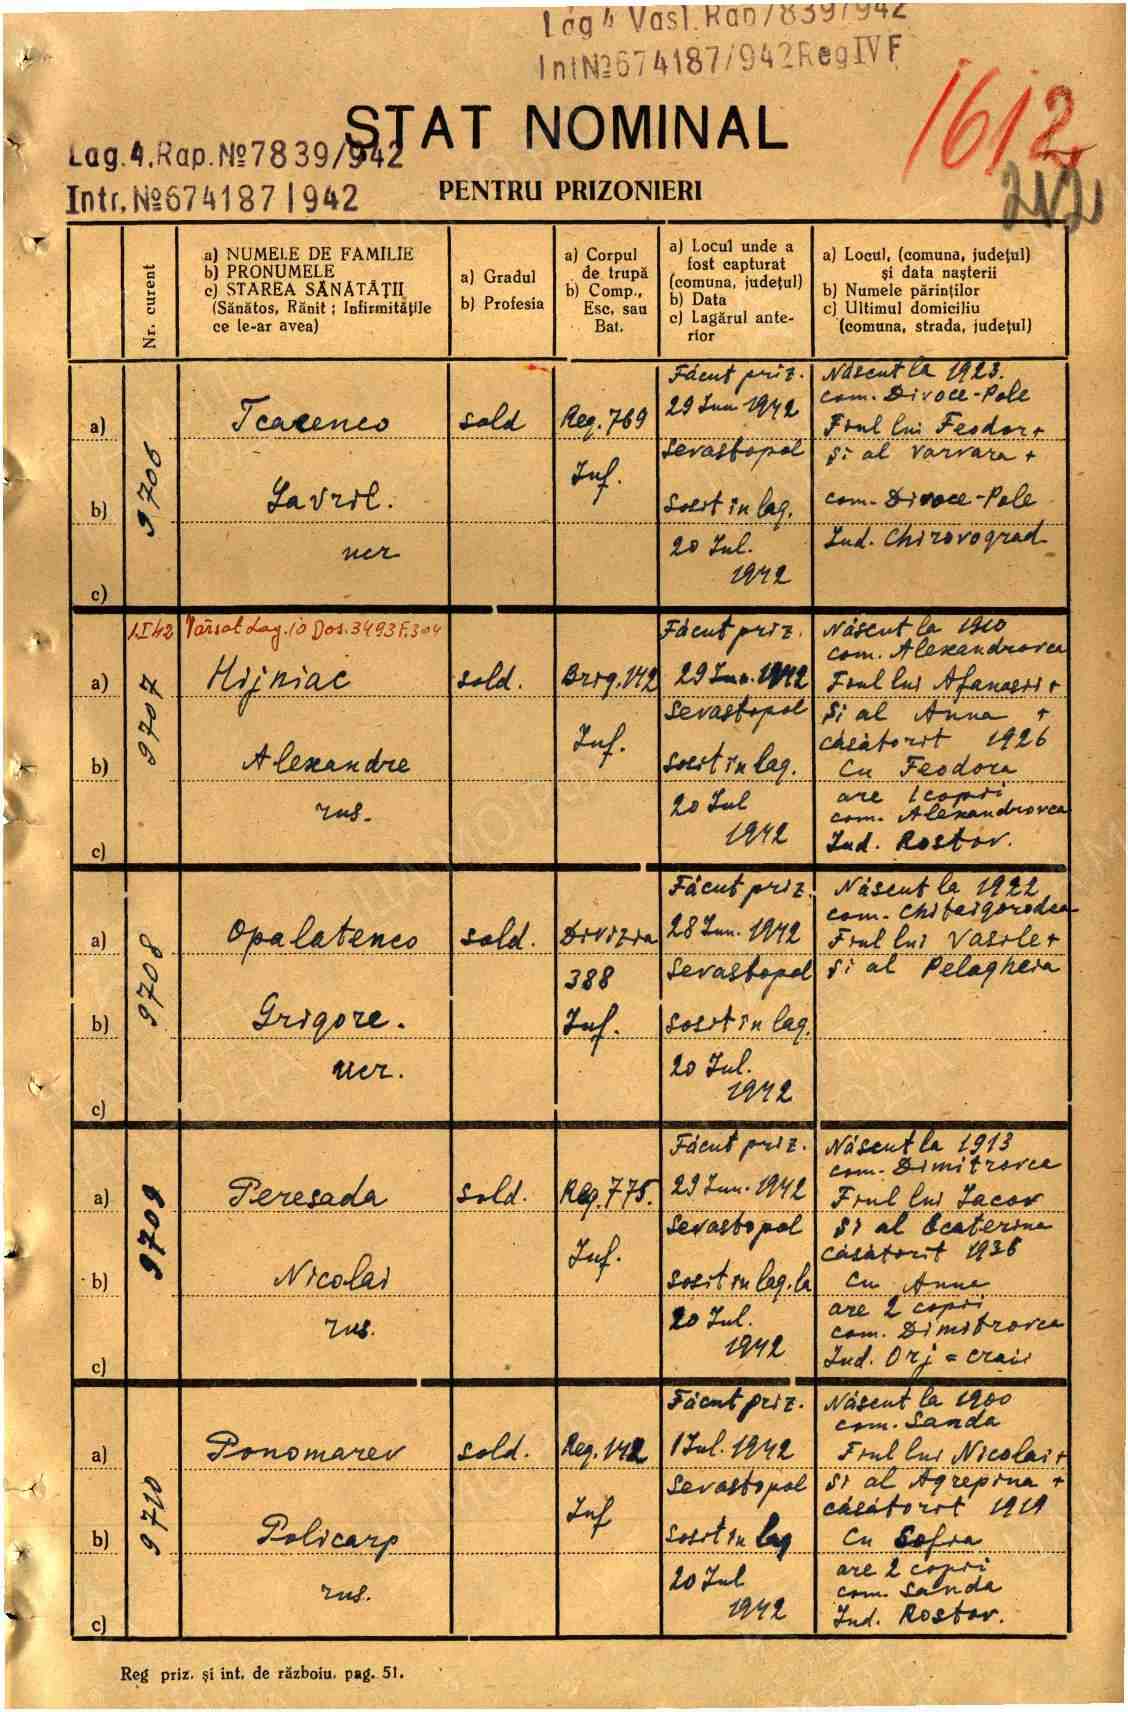 Lag 4 Vasl. Rap 7839/942
Int№674187/942 Reg IV F
1612
STAT NOMINAL
Lag.4.Rap.№7839/942
Intr.№674187/942
PENTRU PRIZONIERI
212
Nr. curent
a) NUMELE DE FAMILIE
b) PRONUMELE
c) STAREA SĂNĂTĂȚII
(Sănătos, Rănit ; Infirmitățile
ce le-ar avea)
a) Gradul
b) Profesia
a) Corpul
de trupă
b) Comp.,
Esc, sau
Bat.
a) Locul unde a
fost capturat
(comuna, județul)
b) Data
c) Lagărul ante-
rior
a) Locul, (comuna, județul)
și data nașterii
b) Numele părinților
c) Ultimul domiciliu
(comuna, strada, județul)
a)
b)
c)
9706
Tcacenco
Gavril.
ucr
sold
Reg. 769
Inf.
Făcut priz.
29 Iun 1942
Sevastopol
Sosit în lag.
20 Iul.
1942
Născut la 1923.
com. Divoce-Pole
Fiul lui Feodor +
și al Varvara +
com. Divoce-Pole
Jud. Chirovograd
1 I 42 Vărsat Lag. 10 Dos. 3493 F. 304
a)
b)
c)
9707
Hijniac
Alexandre
rus.
sold.
Brig. 142
Inf.
Făcut priz.
29 Iun. 1942
Sevastopol
Sosit în lag.
20 Iul
1942
Născut la 1910
com. Alexandrovca
Fiul lui Afanasii +
și al Anna +
căsătorit 1926
cu Feodora
are 1 copii
com. Alexandrovca
Jud. Rostov.
a)
b)
c)
9708
Opalatenco
Grigore.
ucr.
sold.
Divizia
388
Inf.
Făcut priz.
28 Iun. 1942
Sevastopol
Sosit în lag.
20 Iul.
1942
Născut la 1922
com. Chitaigorodca
Fiul lui Vasile +
și al Pelagheia
a)
b)
c)
9709
Peresada
Nicolai
rus.
sold.
Reg. 775.
Inf.
Făcut priz.
29 Iun. 1942
Sevastopol
Sosit în lag. la
20 Iul.
1942
Născut la 1913
com. Dimitrovca
Fiul lui Iacov
și al Ecaterina
căsătorit 1936
cu Anna
are 2 copii
com. Dimitrovca
Jud. Orj = craii
a)
b)
c)
9710
Ponomarev
Policarp
rus.
sold.
Reg. 142
Inf
Făcut priz.
1 Iul. 1942
Sevastopol
Sosit în lag
20 Iul
1942
Născut la 1900
com. Sanda
Fiul lui Nicolai +
și al Agrepina +
căsătorit 1919
cu Sofia
are 2 copii
com. Sanda
Jud. Rostov.
Reg priz. și int. de războiu. pag. 51.